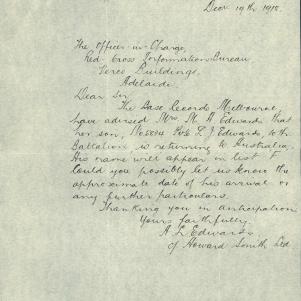 Decr 19th 1918.
The Officer-in-Charge,
Red Cross Information Bureau
Verco Buildings,
Adelaide
Dear Sir
The Base Records Melbourne,
have advised Mrs M. A Edwards that
her son, Pte Edwards, 10th
Battalion is returning to Australia.
His name will appear in list F
Could you possibly let us know the
approximate date of his arrival or
any further particulars.
Thanking you in anticipation
Yours faithfully
A L Edwards
c/ Howard Smith Ltd